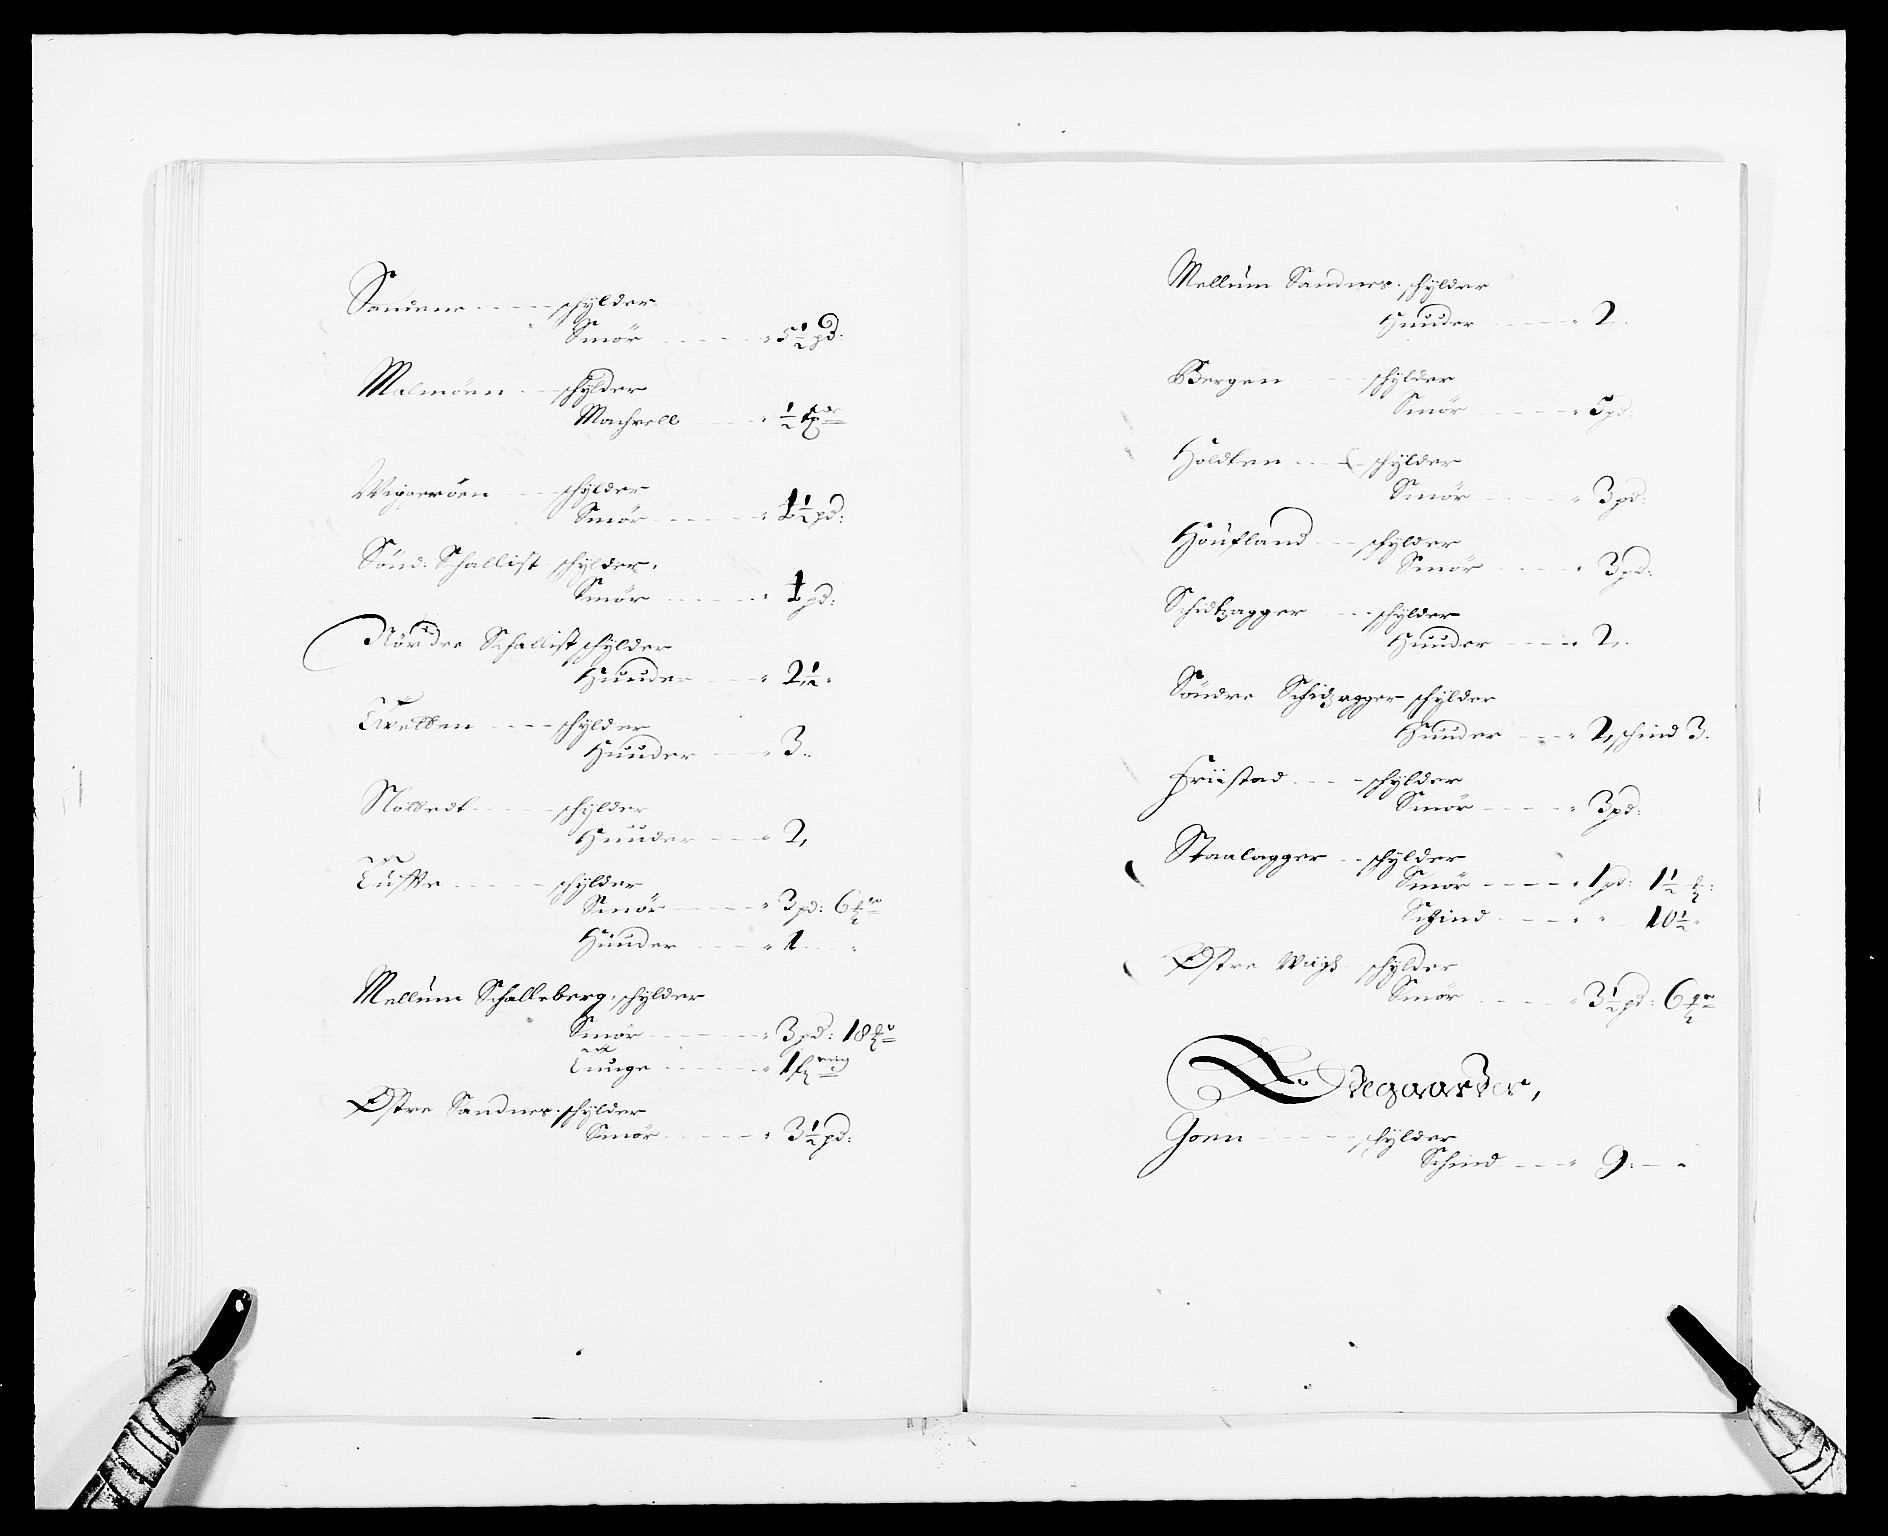 Sandene - - - - schylder
Smör - - - - - 5½ pd:
Malmöen - - schylder
Machrell - - - - ½ tør
Wiggeröen - - - schylder
Smör - - - - - 1½ pd:
Sönd: Schallist schylder.
Smör - - - - - 1 pd:
Nördre Schallist schylder
Huuder - - - 2½.
Tvetten - - - - schylder
Huuder - - - 3.
schylder
Huuder - - - 2,
Tufte - - - - - schylder
Smör - - - - 3 pd: 6
Huuder - - - - 1 - - -
Mellum Schalleberg, schylder
Smör - - - - - 3 pd: 18
Tunge - - - - - 1
Østre Sandnes schylder
Smör - - - - - 3½ pd:
Mellum Sandnes schylder
Huuder - - - - 2.
Bergen - - - schylder
Smör - - - - - 5 pd:
Holdten - - - schylder
Smör - - - - - 3 pd:
Houfland - - - schylder
Smör - - - - - 3 pd:
Schidtzagger - - - schylder
Huuder - - - - 2,
Söndre Schidzagger schylder
Huuder - - - 2, schind 3.
Friestad - - - - schylder
Smör - - - - - 3 pd:
Staalagger - - schylder
Smör - - - - - 1 pd: 1½
Schind - - - - - 10½
Østre Wiigs schylder
Smör - - - - - 3½ pd: 6
Ødegaarder,
Goen - - - - - schylder
Schind - - - - 9: -